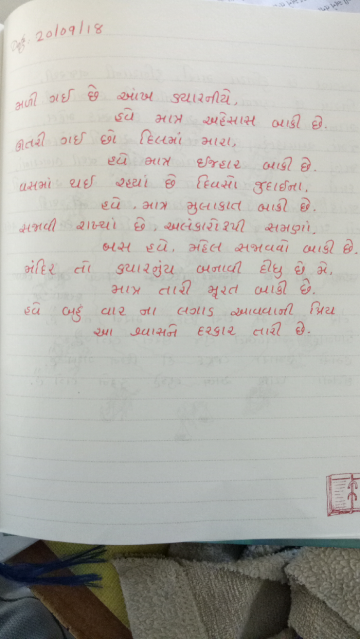 તા: 20/09/18
મળી ગઈ છે આંખ ક્યારનીયે,
હવે માત્ર અહેસાસ બાકી છે.
ઊતરી ગઈ છો દિલમાં મારા,
હવે માત્ર ઈજહાર બાકી છે.
વસમાં થઈ રહ્યાં છે દિવસો જુદાઈના,
હવે માત્ર મુલાકાત બાકી છે.
સજાવી રાખ્યાં છે અલંકારોરૂપી સમણાં,
બસ હવે, મહેલ સજાવવો બાકી છે.
મંદિર તો ક્યારનુંય બનાવી દીધુ છે મેં,
માત્ર તારી મૂરત બાકી છે.
હવે બહુ વાર ના લગાડ આવવાની પ્રિય
આ શ્વાસને દરકાર તારી છે.